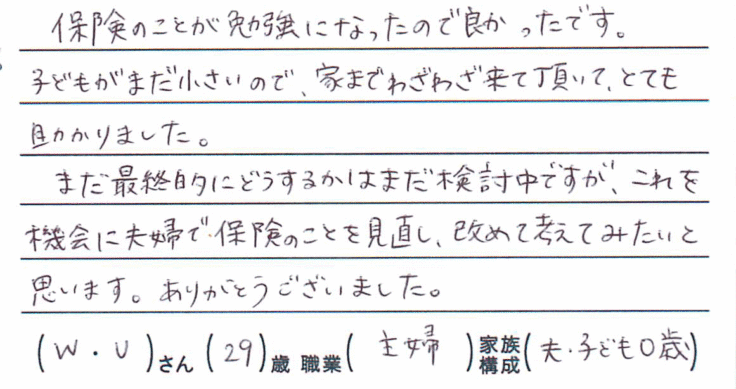 保険のことが勉強になったので良かったです。
子どもがまだ小さいので、家までわざわざ来て頂いて、とても
助かりました。
まだ最終的にどうするかはまだ検討中ですが、これを
機会に夫婦で保険のことを見直し、改めて考えてみたいと
思います。ありがとうございました。
(W・U)さん(29)歳 職業(主婦)家族構成(夫・子ども0歳)